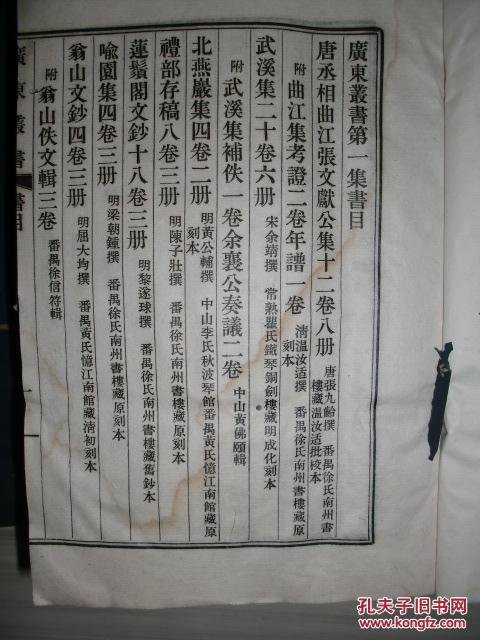 廣東叢書第一集書目
唐丞相曲江張文獻公集十二卷八册 唐張九齡撰 番禺徐氏南州書樓藏溫汝适批校本
附 曲江集考證二卷年譜一卷 清溫汝适撰 番禺徐氏南州書樓藏原刻本
武溪集二十卷六册 宋余靖撰 常熟瞿氏鐵琴銅劍樓藏明成化刻本
附 武溪集補佚一卷余襄公奏議二卷 中山黃佛頤輯
北燕巖集四卷二册 明黃公輔撰 中山李氏秋波琴館番禺黃氏憶江南館藏原刻本
禮部存稿八卷三册 明陳子壯撰 番禺徐氏南州書樓藏原刻本
蓮鬚閣文鈔十八卷三册 明黎遂球撰 番禺徐氏南州書樓藏舊鈔本
喻園集四卷三册 明梁朝鍾撰 番禺徐氏南州書樓藏原刻本
翁山文鈔四卷三册 明屈大均撰 番禺黃氏憶江南館藏清初刻本
附 翁山佚文輯三卷 番禺徐信符輯
廣東叢書 書目
孔夫子旧书网
www.kongfz.com